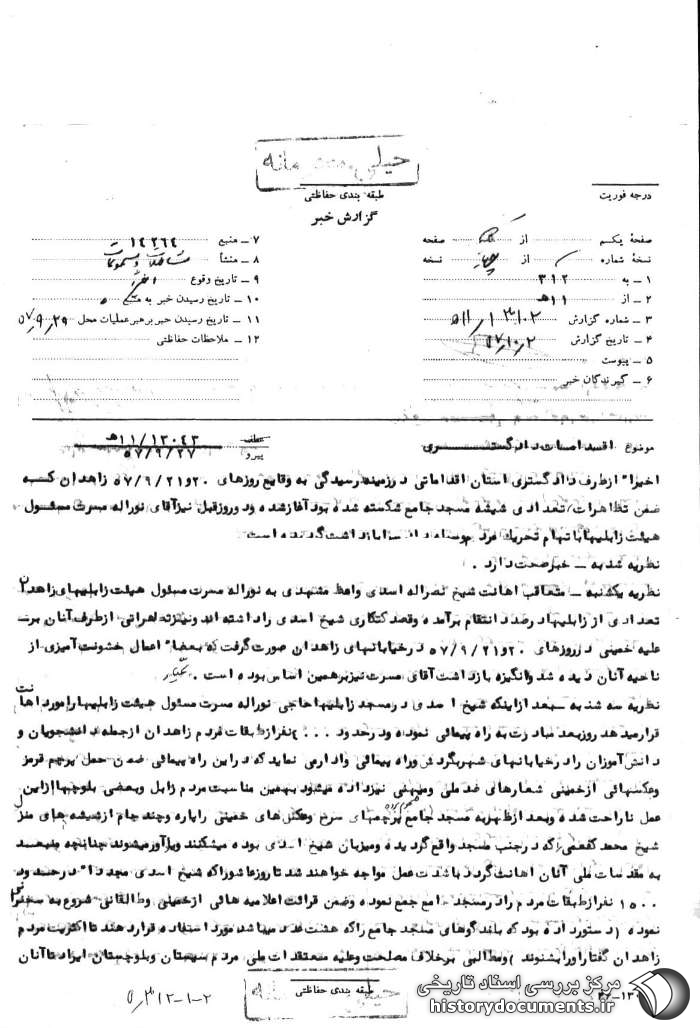 خیلی محرمانه
درجه فوریت
طبقه بندی حفاظتی
گزارش خبر
صفحهٔ یکم از صفحه
نسخهٔ شماره از نسخه
۱ – به ۳۱۲
۲ – از ۱۱هـ
۳ – شماره گزارش
۴ – تاریخ گزارش ۵۷/۱۰/۲
۵ – پیوست
۶ – گیرندگان خبر
۷ – منبع ۱۴۲۶۴
۸ – منشأ
۹ – تاریخ وقوع اخیراً
۱۰ – تاریخ رسیدن خبر به منبع
۱۱ – تاریخ رسیدن خبر برهبر عملیات محل ۵۷/۹/۲۹
۱۲ – ملاحظات حفاظتی
موضوع اقدامات دادگستری
عطف ۱۱/۱۳۰۴۳هـ
پیرو ۵۷/۹/۲۷
اخیرا" ازطرف دادگستری استان اقداماتی درزمینه رسیدگی به وقایع روزهای ۲۰و۵۷/۹/۲۱ زاهدان کـه
ضمن تظاهرات تعدادی شیشه مسجد جامع شکسته شده بود آغاز شده ودر روز قبل نیزآقای نوراله مسرت مسئـول
هیئت زابلیها باتهام تحریک مردم بوسیله دادسرا بازداشت گردیده است .
نظریه شنبه – خبرصحت دارد .
نظریه یکشنبه – متعاقب اهانت شیخ نصراله اسدی واعظ مشهدی به نوراله مسرت مسئول هیئت زابلیهای زاهدان
تعدادی از زابلیها درصدد انتقام برآمده وقصد کتکاری شیخ اسدی راداشته اند ونیز تظاهراتی ازطرف آنان برـ
علیه خمینی درروزهای ۲۰و۵۷/۹/۲۱ درخیابانهای زاهدان صورت گرفت که بعضا" اعمال خشونت آمیزی از
ناحیه آنان دیده شد وانگیزه بازداشت آقای مسرت نیزبرهمین اساس بوده است .
نظریه سه شنبه – بعد ازاینکه شیخ اسدی درمسجد زابلیها حاجی نوراله مسرت مسئول هیئت زابلیها را مورد اهانت
قرارمیدهد روزبعد مبادرت به راه پیمائی نموده ودرحدود ۰۰۰ نفرازطبقات مردم زاهدان ازجمله دانشجویان و
دانش آموزان رادرخیابانهای شهربگردش وراه پیمائی وادارمی نماید که دراین راه پیمائی ضمن حمل پرچم قرمز
وعکسهائی ازخمینی شعارهای ضد ملی ومیهنی نیزداده میشود بهمین مناسبت مردم زابل وبعضی بلوچها ازاین
عمل ناراحت شده وبعد ازظهربه مسجد جامع هجوم برده پرچمهای سرخ وعکس های خمینی راپاره وچند جام ازشیشه های منزل
شیخ محمد کفعمی راکه درجنب مسجد واقع گردیده ومیزبان شیخ اسدی بوده میشکنند ویادآورمیشوند چنانچه بعد
به مقدسات ملی آنان اهانت گردد باشدت عمل مواجه خواهند شد تاروزعاشوراکه شیخ اسدی مجددا" درحدود
۱۵۰۰ نفرازطبقات مردم رادرمسجد جامع جمع نموده وضمن قرائت اعلامیه هائی ازخمینی وطالقانی شروع به سخنرانی
نموده (دستورداده بود که بلندگوهای مسجد جامع راکه هشت عدد میباشد مورد استفاده قراردهند تا اکثریت مردم
زاهدان گفتاراورابشنوند) ومطالبی برخلاف مصلحت وعلیه معتقدات ملی مردم سیستان وبلوچستان ایراد تاآنان
طبقه بندی حفاظتی
خیلی محرمانه
۳۱۲-۱-۲
مرکز بررسی اسناد تاریخی
historydocuments.ir